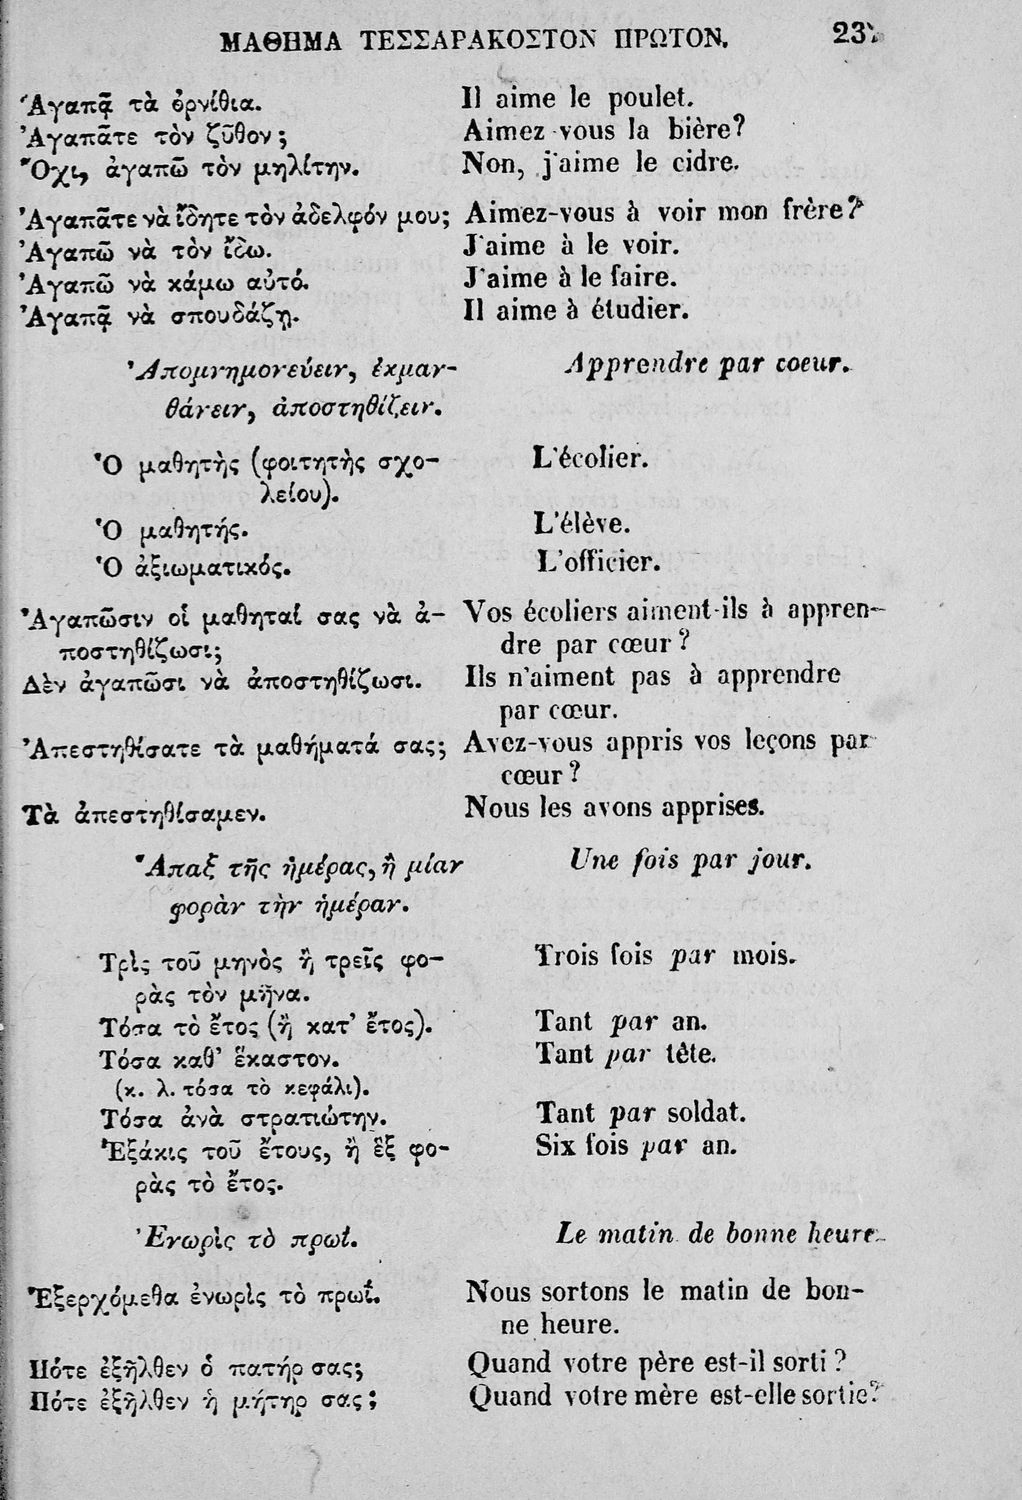 ΜΑΘΗΜΑ ΤΕΣΣΑΡΑΚΟΣΤΟΝ ΠΡΩΤΟΝ.
Ἀγαπᾷ τὰ ὀρνίθια. Il aime le poulet.
Ἀγαπᾶτε τὸν ζῦθον; Aimez-vous la bière?
Ὄχι, ἀγαπῶ τὸν μηλίτην. Non, j'aime le cidre.
Ἀγαπᾶτε νὰ ἴδητε τὸν ἀδελφόν μου; Aimez-vous à voir mon frère?
Ἀγαπῶ νὰ τὸν ἴδω. J'aime à le voir.
Ἀγαπῶ νὰ κάμω αὐτό. J'aime à le faire.
Ἀγαπᾷ νὰ σπουδάζῃ. Il aime à étudier.
Ἀπομνημονεύειν, ἐκμαν- Apprendre par coeur.
θάνειν, ἀποστηθίζειν.
Ὁ μαθητὴς (φοιτητὴς σχο- L'écolier.
λείου).
Ὁ μαθητής. L'élève.
Ὁ ἀξιωματικός. L'officier.
Ἀγαπῶσιν οἱ μαθηταί σας νὰ ἀ- Vos écoliers aiment-ils à appren-
ποστηθίζωσι; dre par cœur?
Δὲν ἀγαπῶσι νὰ ἀποστηθίζωσι. Ils n'aiment pas à apprendre
par cœur.
Ἀπεστηθίσατε τὰ μαθήματά σας; Avez-vous appris vos leçons par
cœur?
Τὰ ἀπεστηθίσαμεν. Nous les avons apprises.
Ἅπαξ τῆς ἡμέρας, ἢ μίαν Une fois par jour.
φορὰν τὴν ἡμέραν.
Τρὶς τοῦ μηνὸς ἢ τρεῖς φο- Trois fois par mois.
ρὰς τὸν μῆνα.
Τόσα τὸ ἔτος (ἢ κατ' ἔτος). Tant par an.
Τόσα καθ' ἕκαστον. Tant par tête.
(κ. λ. τόσα τὸ κεφάλι).
Τόσα ἀνὰ στρατιώτην. Tant par soldat.
Ἑξάκις τοῦ ἔτους, ἢ ἓξ φο- Six fois par an.
ρὰς τὸ ἔτος.
Ἐνωρὶς τὸ πρωΐ. Le matin de bonne heure.
Ἐξερχόμεθα ἐνωρὶς τὸ πρωΐ. Nous sortons le matin de bon-
ne heure.
Πότε ἐξῆλθεν ὁ πατήρ σας; Quand votre père est-il sorti?
Πότε ἐξῆλθεν ἡ μήτηρ σας; Quand votre mère est-elle sortie?